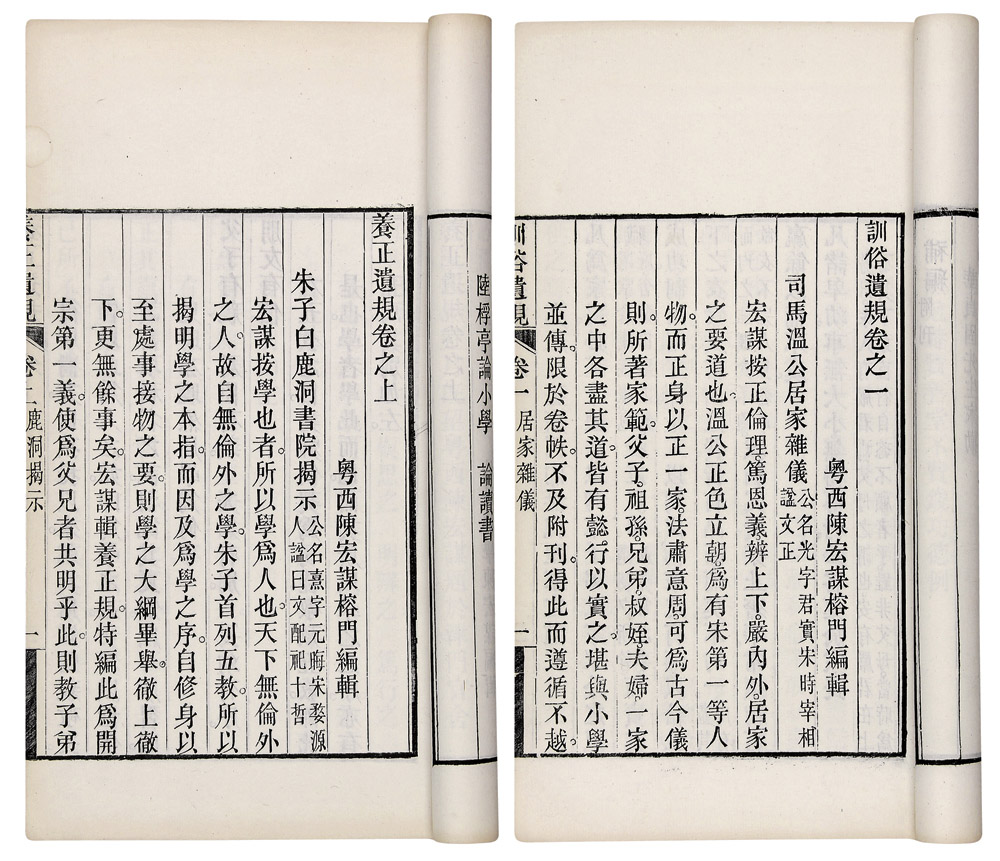 訓俗遺規卷之一
粵西陳宏謀榕門編輯
司馬溫公居家雜儀公名光字君實宋時宰相
諡文正
宏謀按正倫理。篤恩義。辨上下。嚴內外。居家
之要道也。溫公正色立朝。爲有宋第一等人
物。而正身以正一家。法肅意周。可爲古今儀
則。所著家範。父子。祖孫。兄弟。叔姪。夫婦。一家
之中各盡其道。皆有懿。行以實之。堪與小學
並傳。限於卷帙。不及附刊。得此而遵循不越。
訓俗遺規 卷一 居家雜儀 一
陸桴亭論小學 論讀書
養正遺規卷之上
粵西陳宏謀榕門編輯
朱子白鹿洞書院揭示公名熹字元晦宋婺源
人諡曰文配祀十哲
宏謀按學也者。所以學爲人也。天下無倫外
之人。故自無倫外之學。朱子首列五教。所以
揭明學之本指。而因及爲學之序。自修身以
至處事接物之要。則學之大綱畢舉。徹上徹
下。更無餘事矣。宏謀輯養正規。特編此爲開
宗第一義。使爲父兄者共明乎此。則教子弟
養正遺規 卷上 鹿洞揭示 一